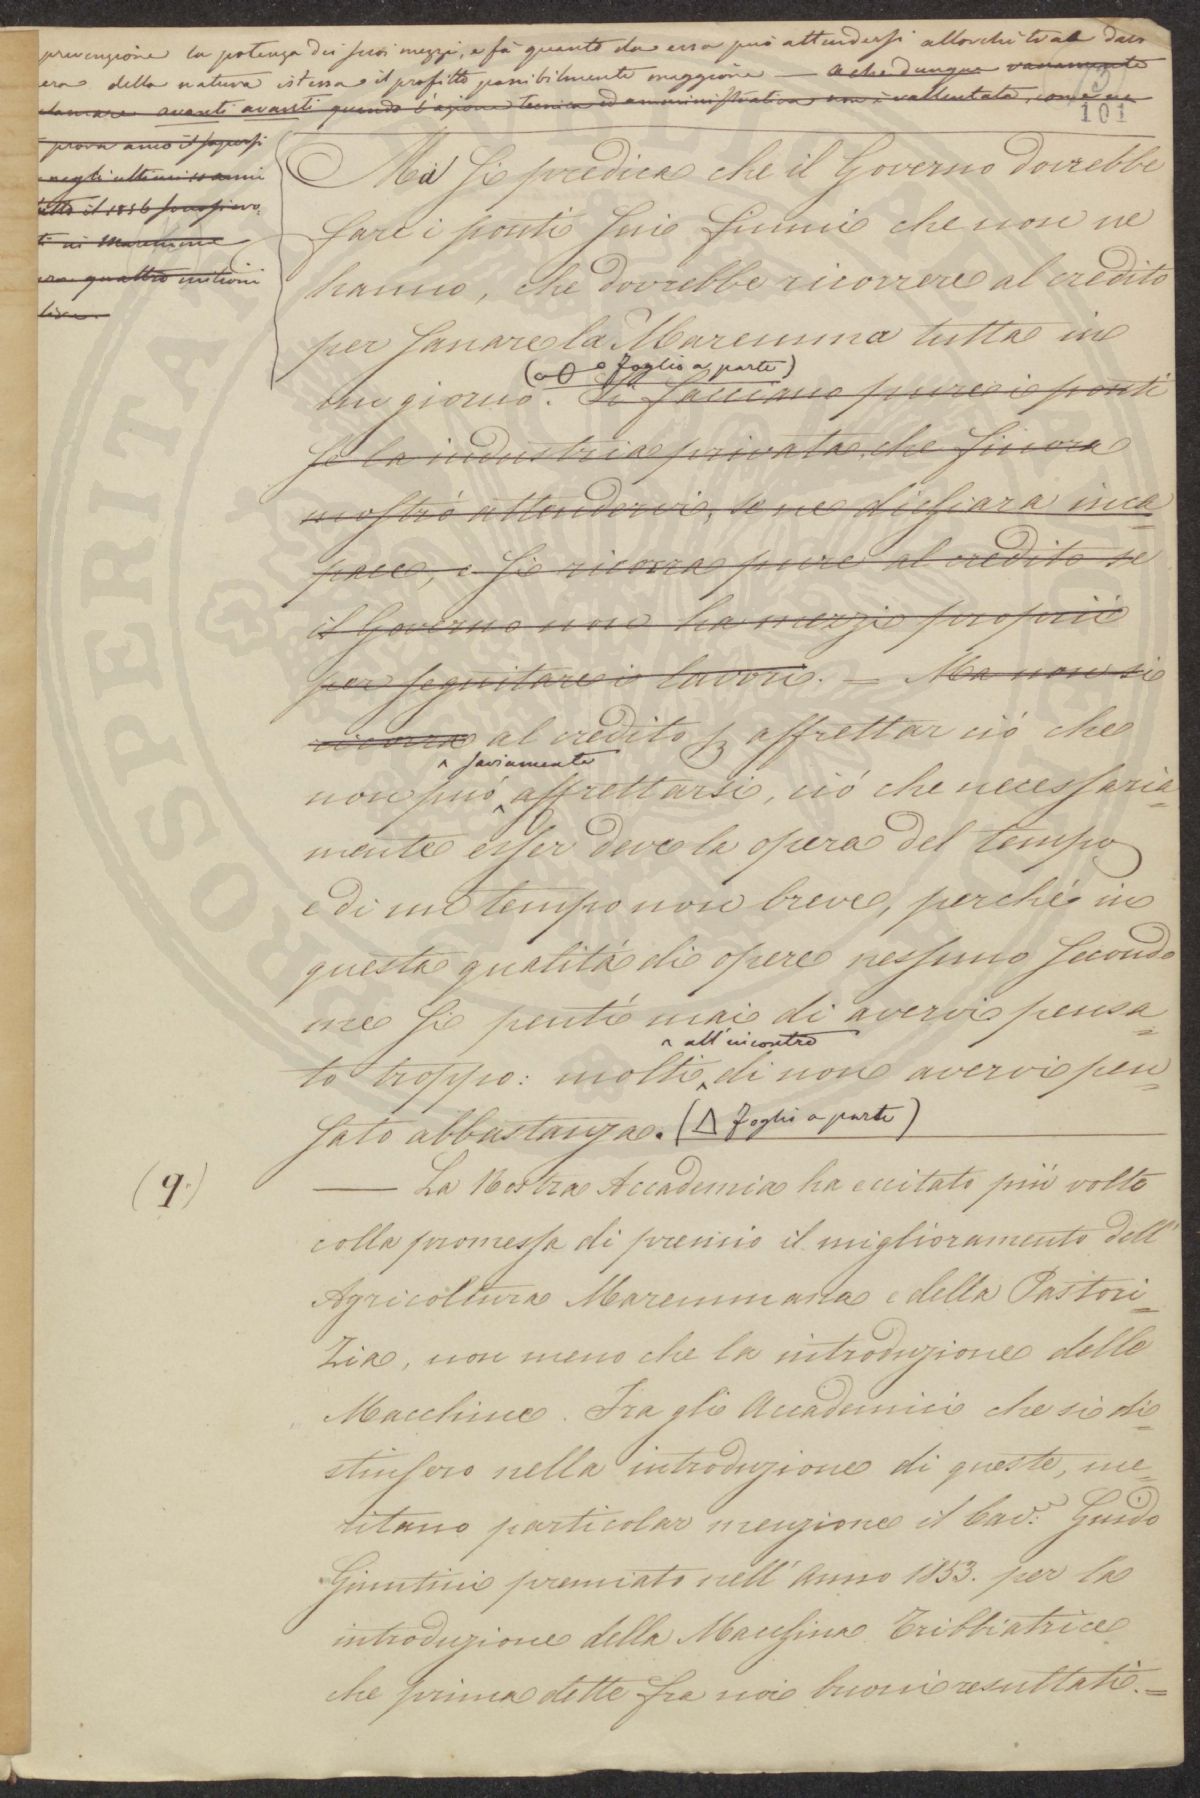 prevenzione la potenza dei suoi mezzi, e fà quanto da essa può attendersi allorchè trae dall'o
era della natura istessa il profitto possibilmente maggiore — A che dunque vanamente
clamare avanti avanti quando l'azione tecnica ed amministrativa non è rallentata, come ne
prova anco il sapersi
negli ultimi 10 anni
tutto il 1856
in Maremma
quattro milioni
lire.
3
101
Ma si predica che il Governo dovrebbe
fare i ponti sui fiumi che non ne
hanno, che dovrebbe ricorrere al credito
per sanare la Maremma tutta in
un giorno. Si facciano pure i ponti
(foglio a parte)
se la industria privata, che finora
mostrò attendervi, se ne dichiara inca=
pace, e si ricorra pure al credito se
il Governo non ha mezzi proprii
per seguitare i lavori. = Ma non si
ricorra al credito p affrettar ciò che
saviamente
non può affrettarsi, ciò che necessaria=
mente esser deve la opera del tempo
e di un tempo non breve, perchè in
questa qualità di opere nessuno secondo
me si pentì mai di avervi pensa=
all'incontro
to troppo: molti di non avervi pen=
sato abbastanza. (Δ foglio a parte)
(9.)
— La Nostra Accademia ha eccitato più volte
colla promessa di premio il miglioramento dell'
Agricoltura Maremmana e della Pastori=
zia, non meno che la introduzione delle
Macchine. Fra gli Accademici che si di=
stinsero nella introduzione di queste, me=
ritano particolar menzione il Cav.r Guido
Giuntini premiato nell'Anno 1853. per la
introduzione della Macchina Tribbiatrice
che prima dette fra noi buoni resultati. =
PROSPERITÀ